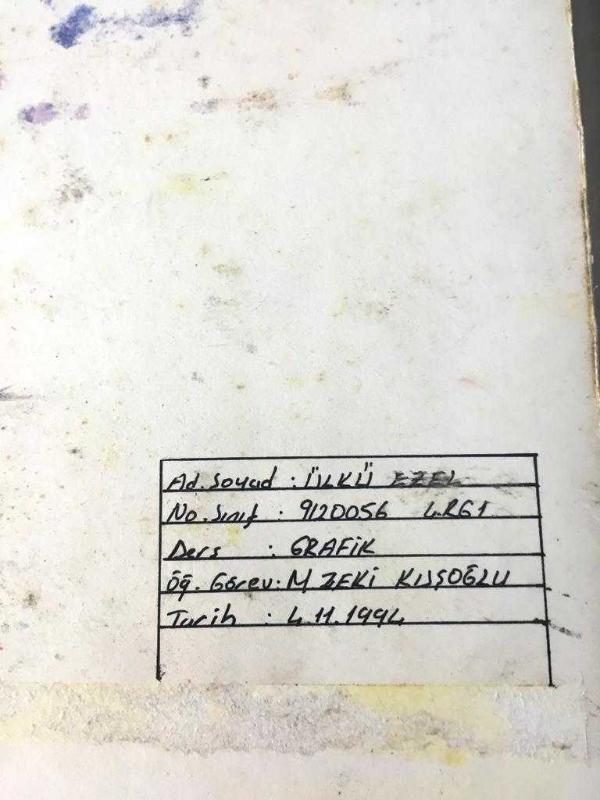 Ad. Soyad : ÜLKÜ EZEL
No. Sınıf : 9120056 4.RG1
Ders : GRAFİK
Öğ. Görev: M ZEKİ KUŞOĞLU
Tarih : 4.11.1994